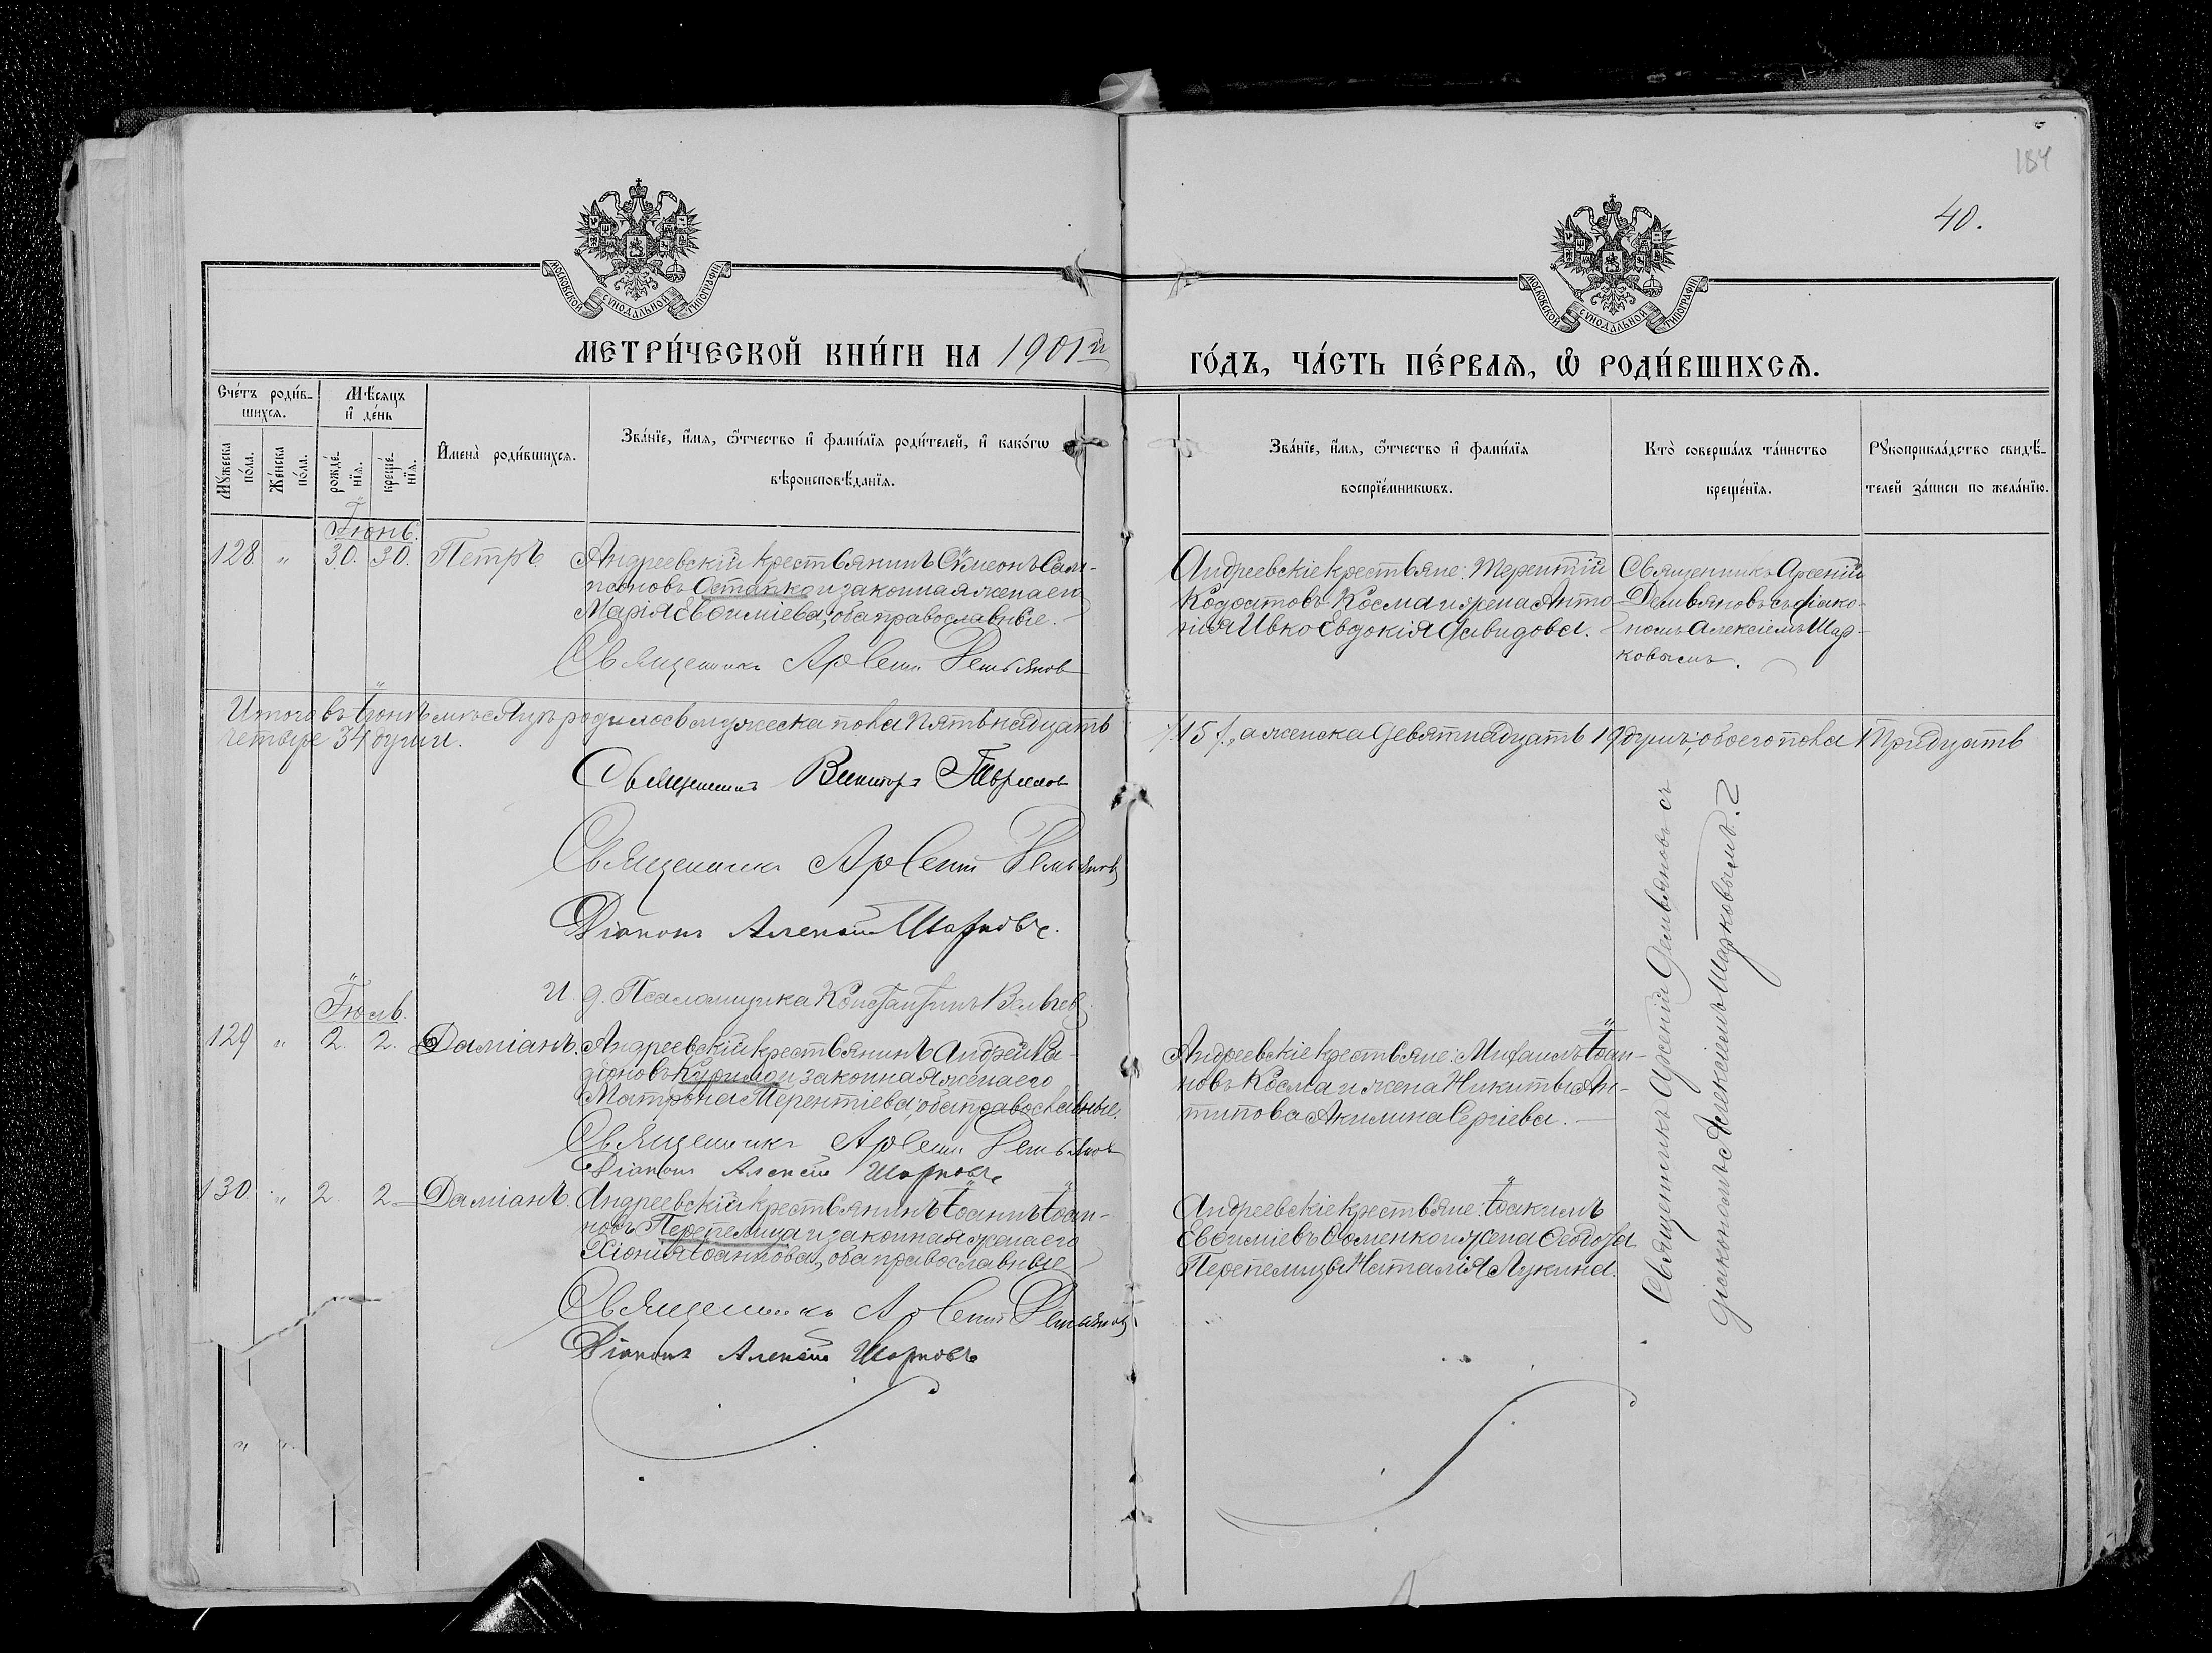 184
40.
МОСКОВСКОЙ СѴНОДАЛЬНОЙ ТИПОГРАФІИ
МОСКОВСКОЙ СѴНОДАЛЬНОЙ ТИПОГРАФІИ
МЕТРИ́ЧЕСКОЙ КНИ́ГИ НА 1901й
ГО́ДЪ, ЧА́СТЬ ПЕ́РВАѦ, Ѡ҆ РОДИ́ВШИХСѦ.
Сче́тъ роди́в-
шихсѧ.
Мꙋжеска по́ла.
Же́нска по́ла.
Мѣ́сѧцъ
и҆ де́нь
рожде́-
нїѧ.
креще́-
нїѧ.
И҆мена̀ роди́вшихсѧ.
Зва́нїе, и҆́мѧ, ѻ҆́тчество и҆ фами́лїѧ роди́телей, и҆ како́гѡ
вѣроисповѣ́данїѧ.
Зва́нїе, и҆́мѧ, ѻ҆́тчество и҆ фами́лїѧ
воспрїе́мникѡвъ.
Кто̀ соверша́лъ та́инство
креще́нїѧ.
Рꙋкоприкла́дство свидѣ́-
телей за́писи по жела́нїю.
Іюнь.
128. " 30. 30. Петръ
Андреевскій крестьянинъ Сѵмеонъ Сам-
псоновъ Остапко и законная жена его
Марія Евѳиміева, оба православные.
Священникъ Арсеній Демьянов
Андреевскіе крестьяне: Терентій
Кодратовъ Косма и жена Анто-
нія Ивко Евдокія Давидова.
Священникъ Арсеній
Демьяновъ съ діако-
номъ Алексіемъ Шар-
ковымъ.
Итого въ Іюнѣ мѣсяцѣ родилось мужеска пола пятьнадцать
/15/, а женска девятнадцать 19 душъ, обоего пола тридцать
четыре 34 души.
Священникъ Викторъ
Священникъ Арсеній Демьянов
Діаконъ Алексій Шарковъ.
И. д. Псаломщика Константинъ
Іюль.
129 " 2. 2. Даміанъ.
Андреевскій крестьянинъ Андрей Ра-
діоновъ и законная жена его
Матрона Терентіева, оба православные.
Священникъ Арсеній Демьянов
Діаконъ Алексій Шарковъ
Андреевскіе крестьяне: Михаилъ Іоан-
новъ Косма и жена Никиты Ан-
типова Акилина Сергіева.
130 " 2 2 Даміанъ.
Андреевскій крестьянинъ Іоаннъ Іоан-
новъ Перепелица и законная жена его
Хіонія Іоаннова, оба православные
Священникъ Арсеній Демьянов
Діаконъ Алексій Шарковъ
Андреевскіе крестьяне: Іоакимъ
Евѳиміевъ Ѳоменко и жена Ѳеодора
Перепелицы Наталія Лукина.
Священникъ Арсеній Демьяновъ съ
діакономъ Алексіемъ Шарковымъ.
" "